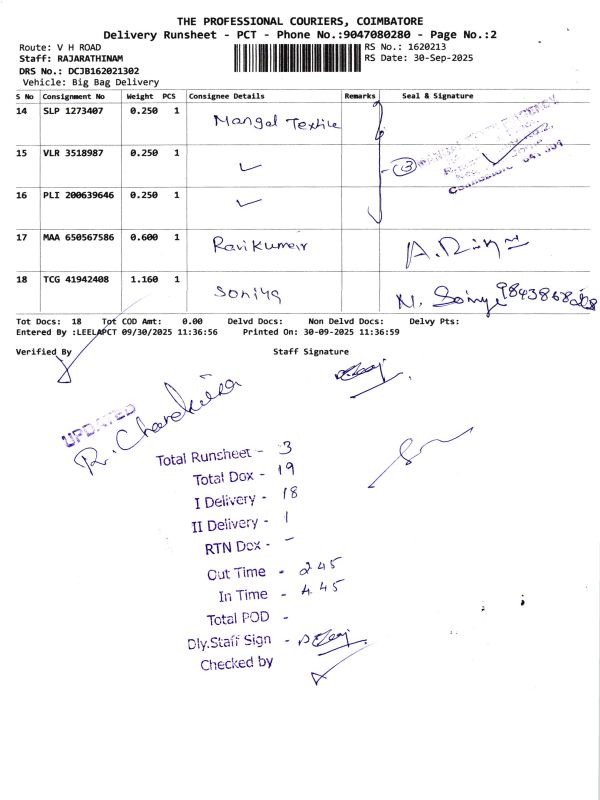 THE PROFESSIONAL COURIERS, COIMBATORE
Delivery Runsheet - PCT - Phone No.:9047080280 - Page No.:2
Route: V H ROAD
RS No.: 1620213
Staff: RAJARATHINAM
RS Date: 30-Sep-2025
DRS No.: DCJB162021302
Vehicle: Big Bag Delivery
S No Consignment No Weight PCS Consignee Details Remarks Seal & Signature
14 SLP 1273407 0.250 1 Mangal Textile
15 VLR 3518987 0.250 1 ✓ 3
16 PLI 200639646 0.250 1 ✓
17 MAA 650567586 0.600 1 Ravikumar
18 TCG 41942408 1.160 1 Soniya
Tot Docs: 18 Tot COD Amt: 0.00 Delvd Docs: Non Delvd Docs: Delvy Pts:
Entered By :LEELAPCT 09/30/2025 11:36:56 Printed On: 30-09-2025 11:36:59
Verified By Staff Signature
UPDATED
Total Runsheet - 3
Total Dox - 19
I Delivery - 18
II Delivery - 1
RTN Dox - -
Out Time - 2 45
In Time - 4 45
Total POD -
Dly.Staff Sign -
Checked by